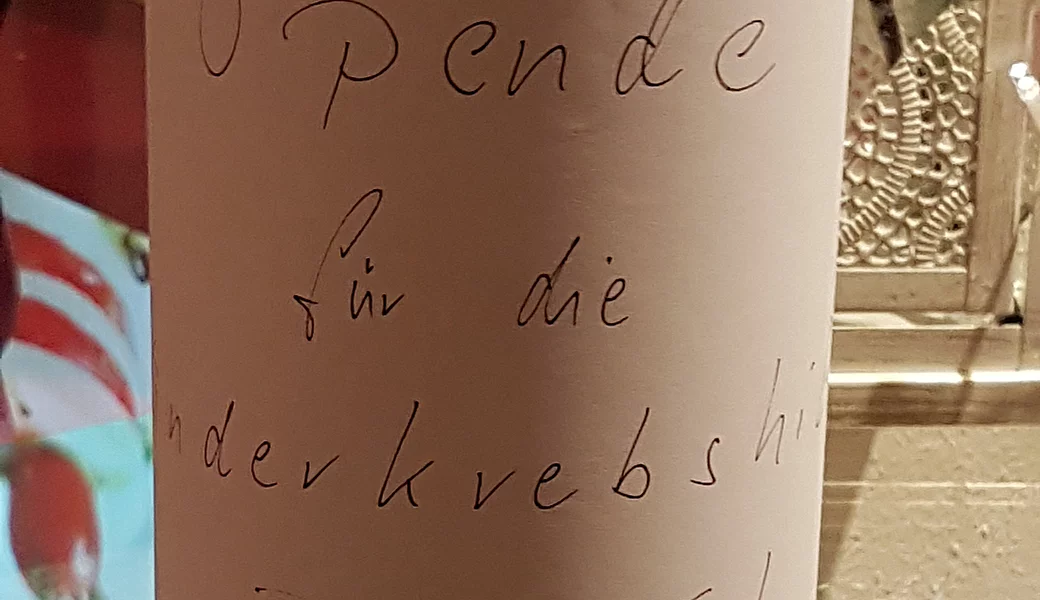 Spende
für die
nderkrebshi